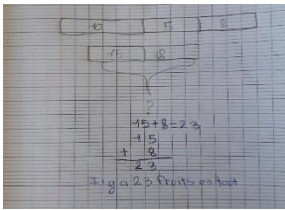 10 5 8
15 8
?
15+8=23
15
+ 8
23
Il y a 23 fruits en tout